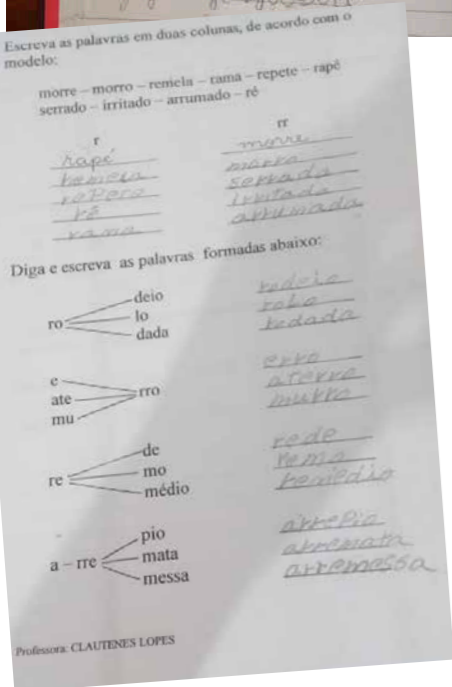 Escreva as palavras em duas colunas, de acordo com o
modelo:
morre – morro – remela – rama – repete – rapé
serrado – irritado – arrumado – ré
r
rr
rapé
morre
remela
morro
serrado
ré
irritado
rama
arrumada
Diga e escreva as palavras formadas abaixo:
ro
deio
lo
dada
rodeio
rolo
rodada
e
ate
mu
rro
erro
aterro
murro
re
de
mo
médio
rede
remo
remédio
a – rre
pio
mata
messa
arrepio
arremata
arremessa
Professora: CLAUTENES LOPES